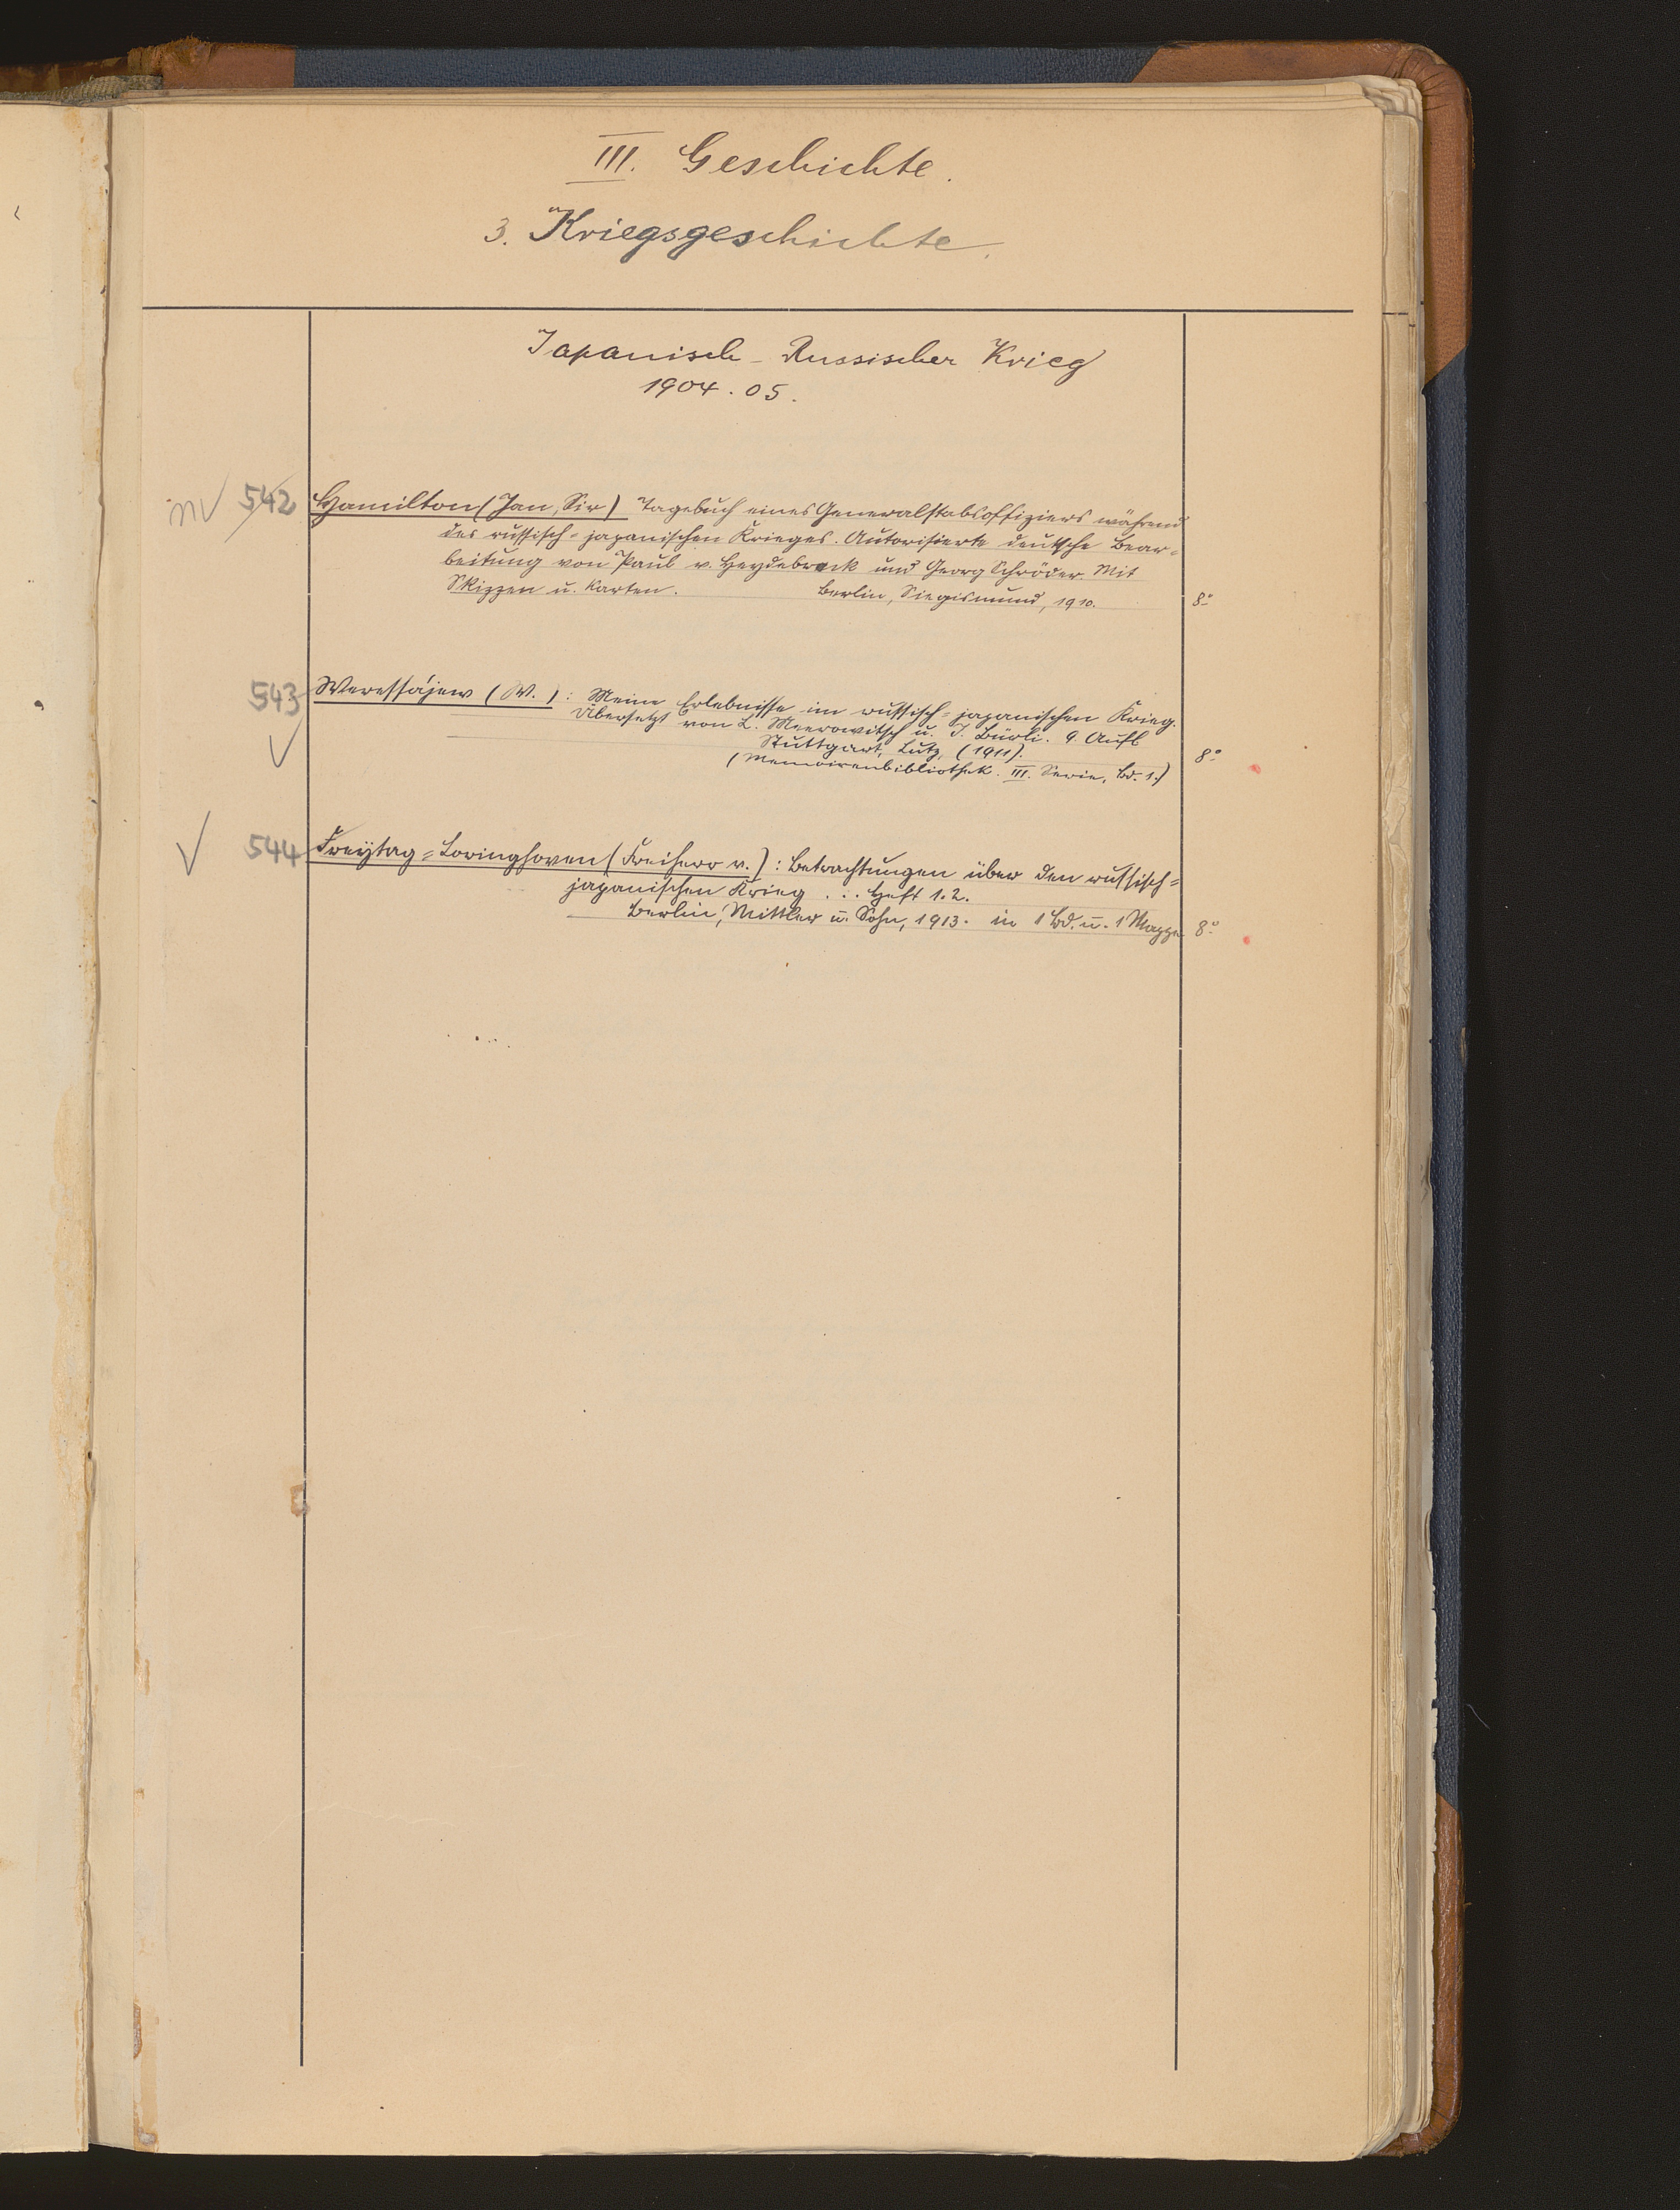 III. Geschichte.
3. Kriegsgeschichte.
Japanisch-Russischer Krieg
1904.05.
542 Hamilton (Jan, Sir) Tagebuch eines Generalstabsoffiziers während
des russisch=japanischen Krieges. Autorisierte deutsche Bear=
beitung von Paul v. Heydebreck und Georg Schröder. Mit
Skizzen u. Karten. Berlin, Siegismund, 1910. 8°
543 Weressájew (W.): Meine Erlebnisse im russisch=japanischen Krieg.
Übersetzt von L. Meerowitsch u. J. Bürli. 9. Aufl
Stuttgart, Lutz, (1911). 8°
(Memoirenbibliothek. III. Serie, Bd. 1.)
544 Freytag=Loringhoven (Freiherr v.): Betrachtungen über den russisch=
japanischen Krieg ... Heft 1.2.
Berlin, Mittler u. Sohn, 1913. in 1 Bd. u. 1 Mappe 8°